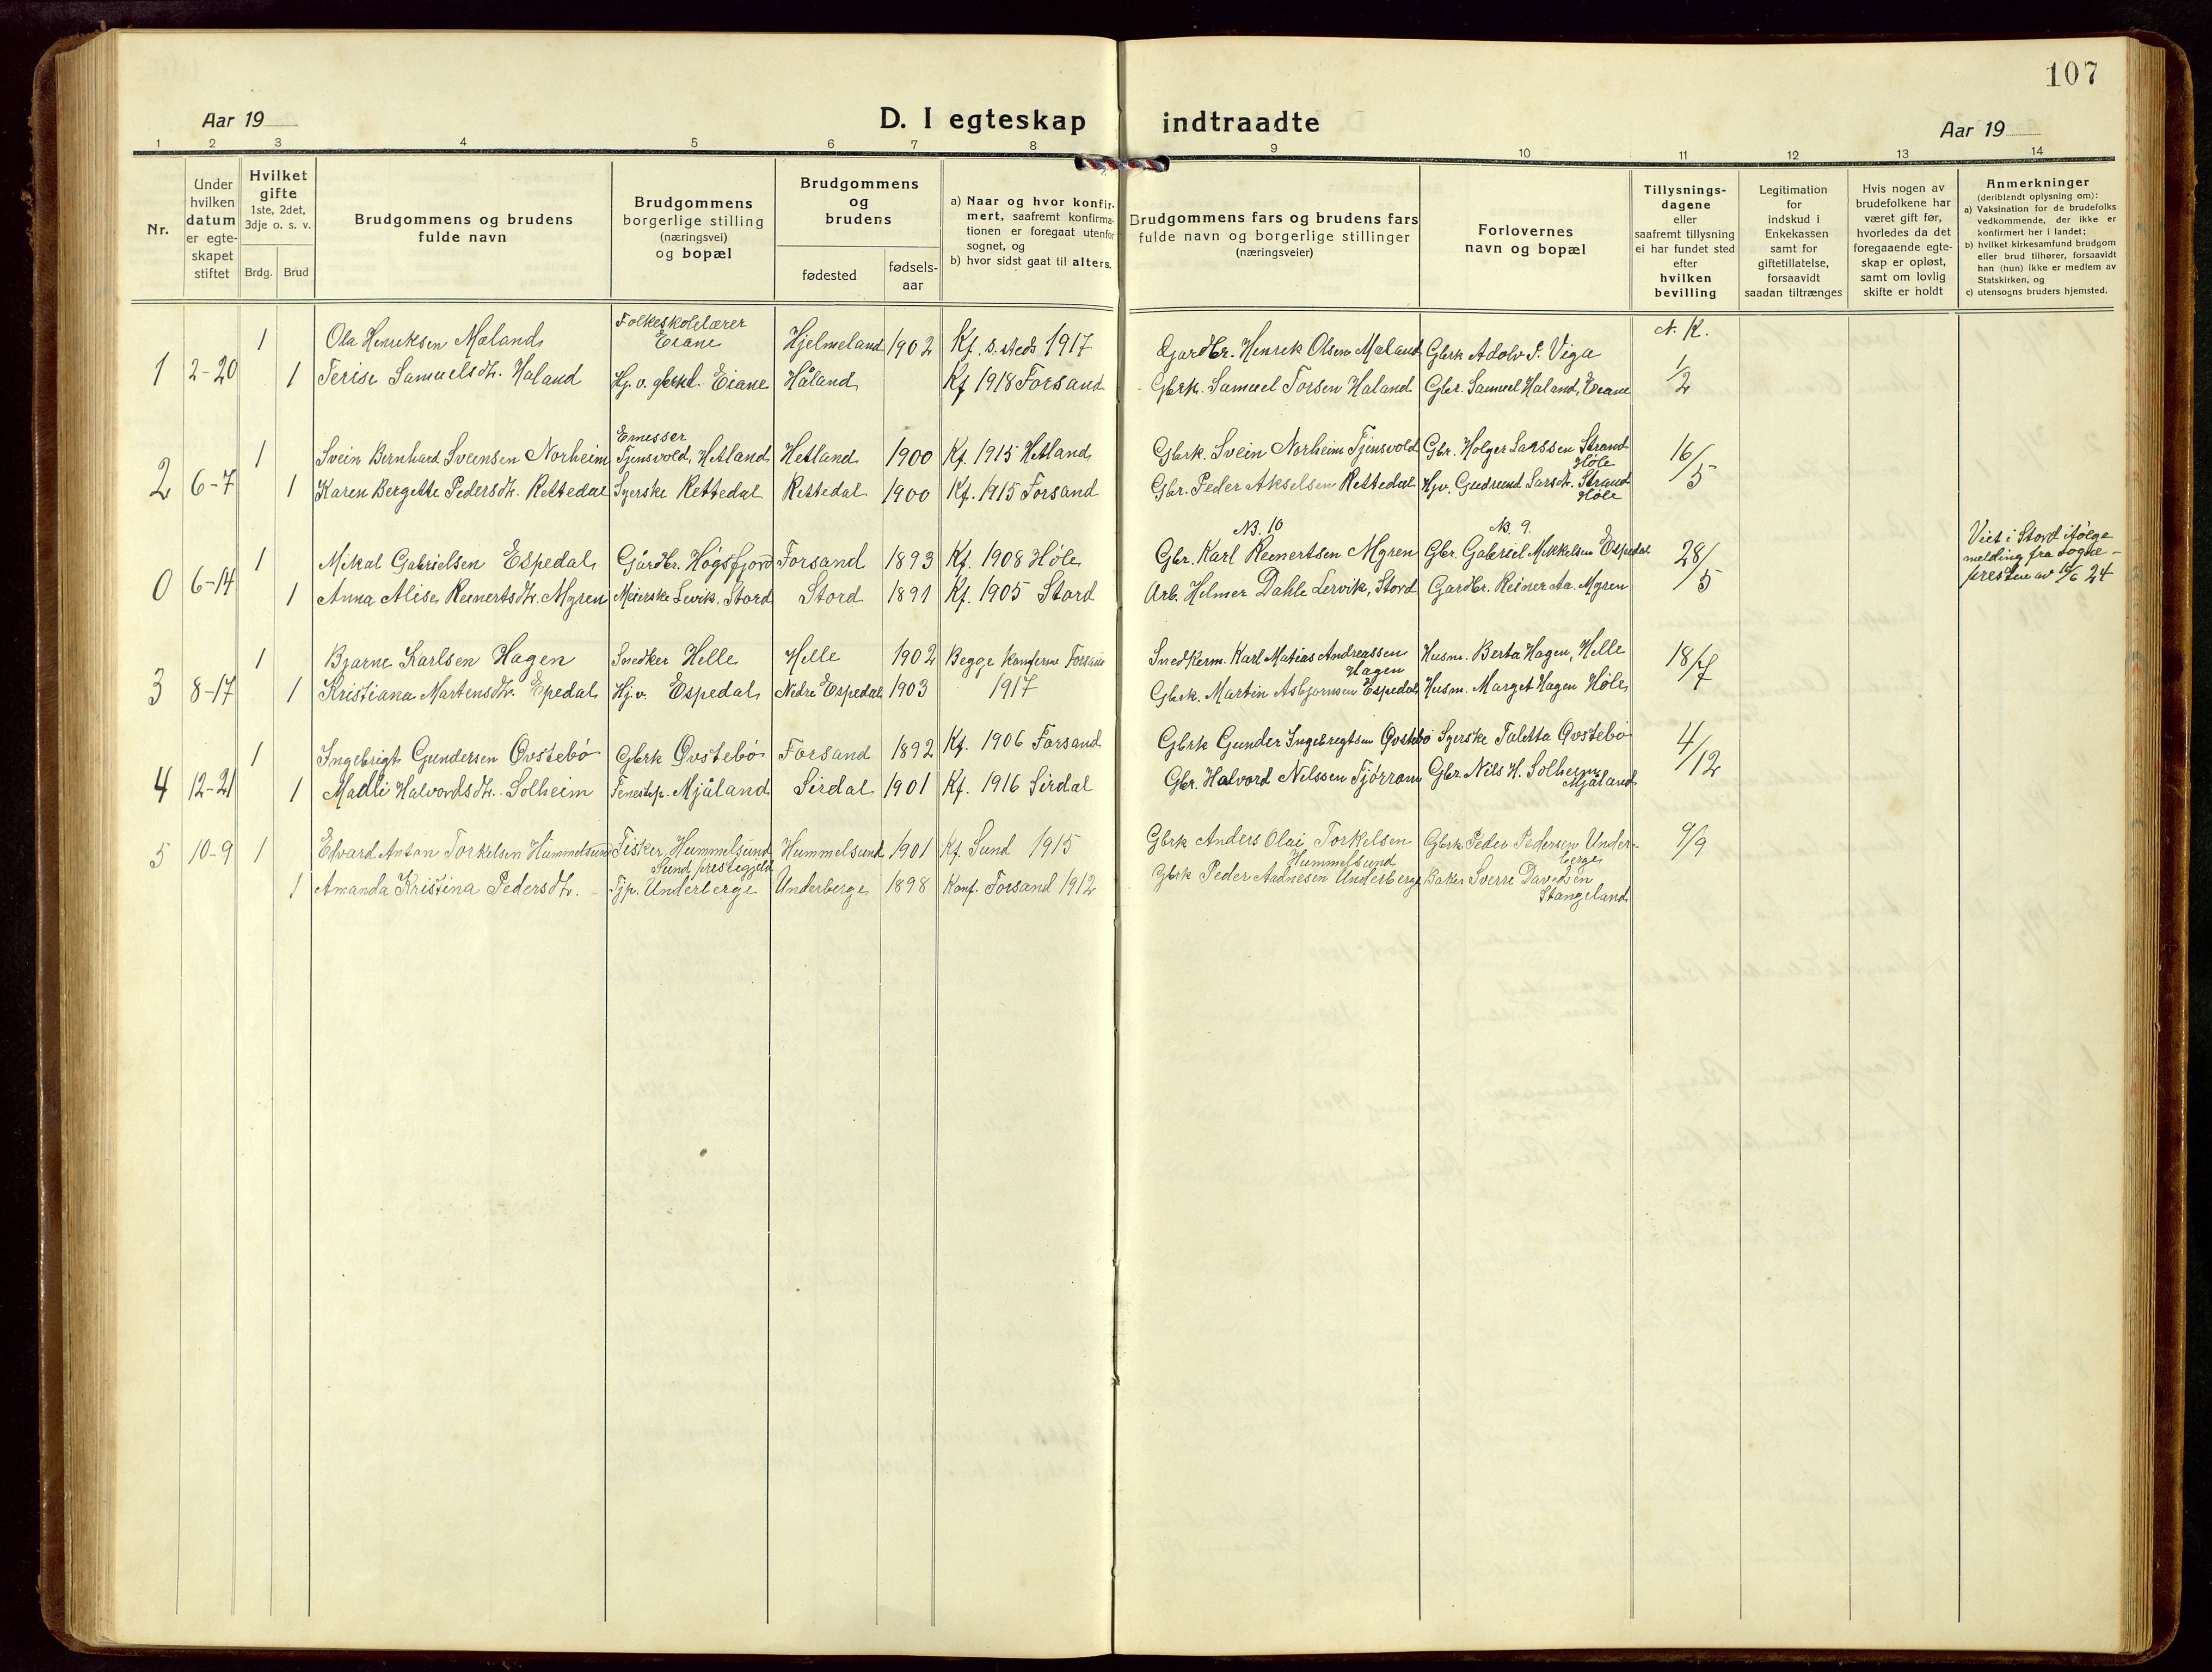 107
Aar 19
D. I egteskap indtraadte
Aar 19
1 2 3 4 5 6 7 8 9 10 11 12 13 14
Nr.
Under
hvilken
datum
er egte-
skapet
stiftet
Hvilket
gifte
1ste, 2det,
3dje o. s. v.
Brdg. Brud
Brudgommens og brudens
fulde navn
Brudgommens
borgerlige stilling
(næringsvei)
og bopæl
Brudgommens
og
brudens
fødested
fødsels-
aar
a) Naar og hvor konfir-
mert, saafremt konfirma-
tionen er foregaat utenfor
sognet, og
b) hvor sidst gaat til alters.
Brudgommens fars og brudens fars
fulde navn og borgerlige stillinger
(næringsveier)
Forlovernes
navn og bopæl
Tillysnings-
dagene
eller
saafremt tillysning
ei har fundet sted
efter
hvilken
bevilling
Legitimation
for
indskud i
Enkekassen
samt for
giftetillatelse,
forsaavidt
saadan tiltrænges
Hvis nogen av
brudefolkene har
været gift før,
hvorledes da det
foregaaende egte-
skap er opløst,
samt om lovlig
skifte er holdt
Anmerkninger
(deriblandt oplysning om):
a) Vaksination for de brudefolks
vedkommende, der ikke er
konfirmert her i landet;
b) hvilket kirkesamfund brudgom
eller brud tilhører, forsaavidt
han (hun) ikke er medlem av
Statskirken, og
c) utensogns bruders hjemsted.
1 Ola Henriksen Mæland Folkeskolelærer Eiane Hjelmeland 1902 Kf. s. steds 1917 Gardbr. Henrik Olsen Mæland Gbrk Adolv P. Viga N. K.
1 2-20 1 Terise Samuelsdtr. Haland Hj. v. gbrkd. Eiane Håland Kf 1918 Forsand Gbrk. Samuel Torsen Haland Gbr. Samuel Haland, Eiane 1/2
1 Svein Bernhard Sveinsen Norheim Emesser Tjensvold, Hetland Hetland 1900 Kf. 1915 Hetland Gbrk. Svein Norheim Tjensvold Gbr. Holger Larssen Strand Høle 16/5
2 6-7 1 Karen Bergitte Pedersdtr. Rettedal Syerske Rettedal Rettedal 1900 Kf. 1915 Forsand Gbr. Peder Akselsen Rettedal Hjv. Gudrund Larsdtr. Strand Høle
NB. 10 NB. 9.
1 Mikal Gabrielsen Espedal Gårdbr. Høgsfjord Forsand 1893 Kf. 1908 Høle Gbr. Karl Reinertsen Mgren Gbr. Gabriel Mikkelsen Espedal 28/5
0 6-14 1 Anna Alise Reinertsdtr. Mgren Meierske Levik, Stord Stord 1891 Kf. 1905 Stord Arb. Helmer Dahle Lervik, Stord Gardbr. Reiner Aa. Mgren
Viet i Stord ifølge
melding fra sogne-
presten av 16/6 24
1 Bjarne Karlsen Hagen Snedker Helle Helle 1902 Begge konferm Forsand Snedkerm. Karl Matias Andreassen Hagen Husm. Berta Hagen, Helle 18/7
3 8-17 1 Kristiana Martensdtr. Epedal Hj. v. Espedal Nedre Espedal 1903 1917 Gbrk. Martin Asbjørnsen Espedal Husm. Marget Hagen Høle
1 Ingebrigt Gundersen Øvstebø Gbrk Øvstebø Forsand 1892 Kf. 1906 Forsand Gbrk Gunder Ingebrigtsen Øvstebø Syerske Taletta Øvstebø 4/12
4 12-21 1 Malli Halvordsdtr. Solheim Tenestp. Mjåland Sirdal 1901 Kf. 1916 Sirdal Gbr. Halvord Nilssen Tjørrom Gbr. Nils H. Solheim Mjåland
5 10-9 1 Edvard Anton Torkelsen Hummelsund Fisker, Hummelsund Sund prestegjeld Hummelsund 1901 Kf. Sund 1915 Gbrk Anders Olai Torkelsen Hummelsund Gbrk Peder Pedersen Under-berge 9/9
1 Amanda Kristina Pedersdtr. - Tjp. Underberge Underberge 1898 Konf. Forsand 1912 Gbrk Peder Aadnesen Underberge Baker Sverre Davidsen Stangeland